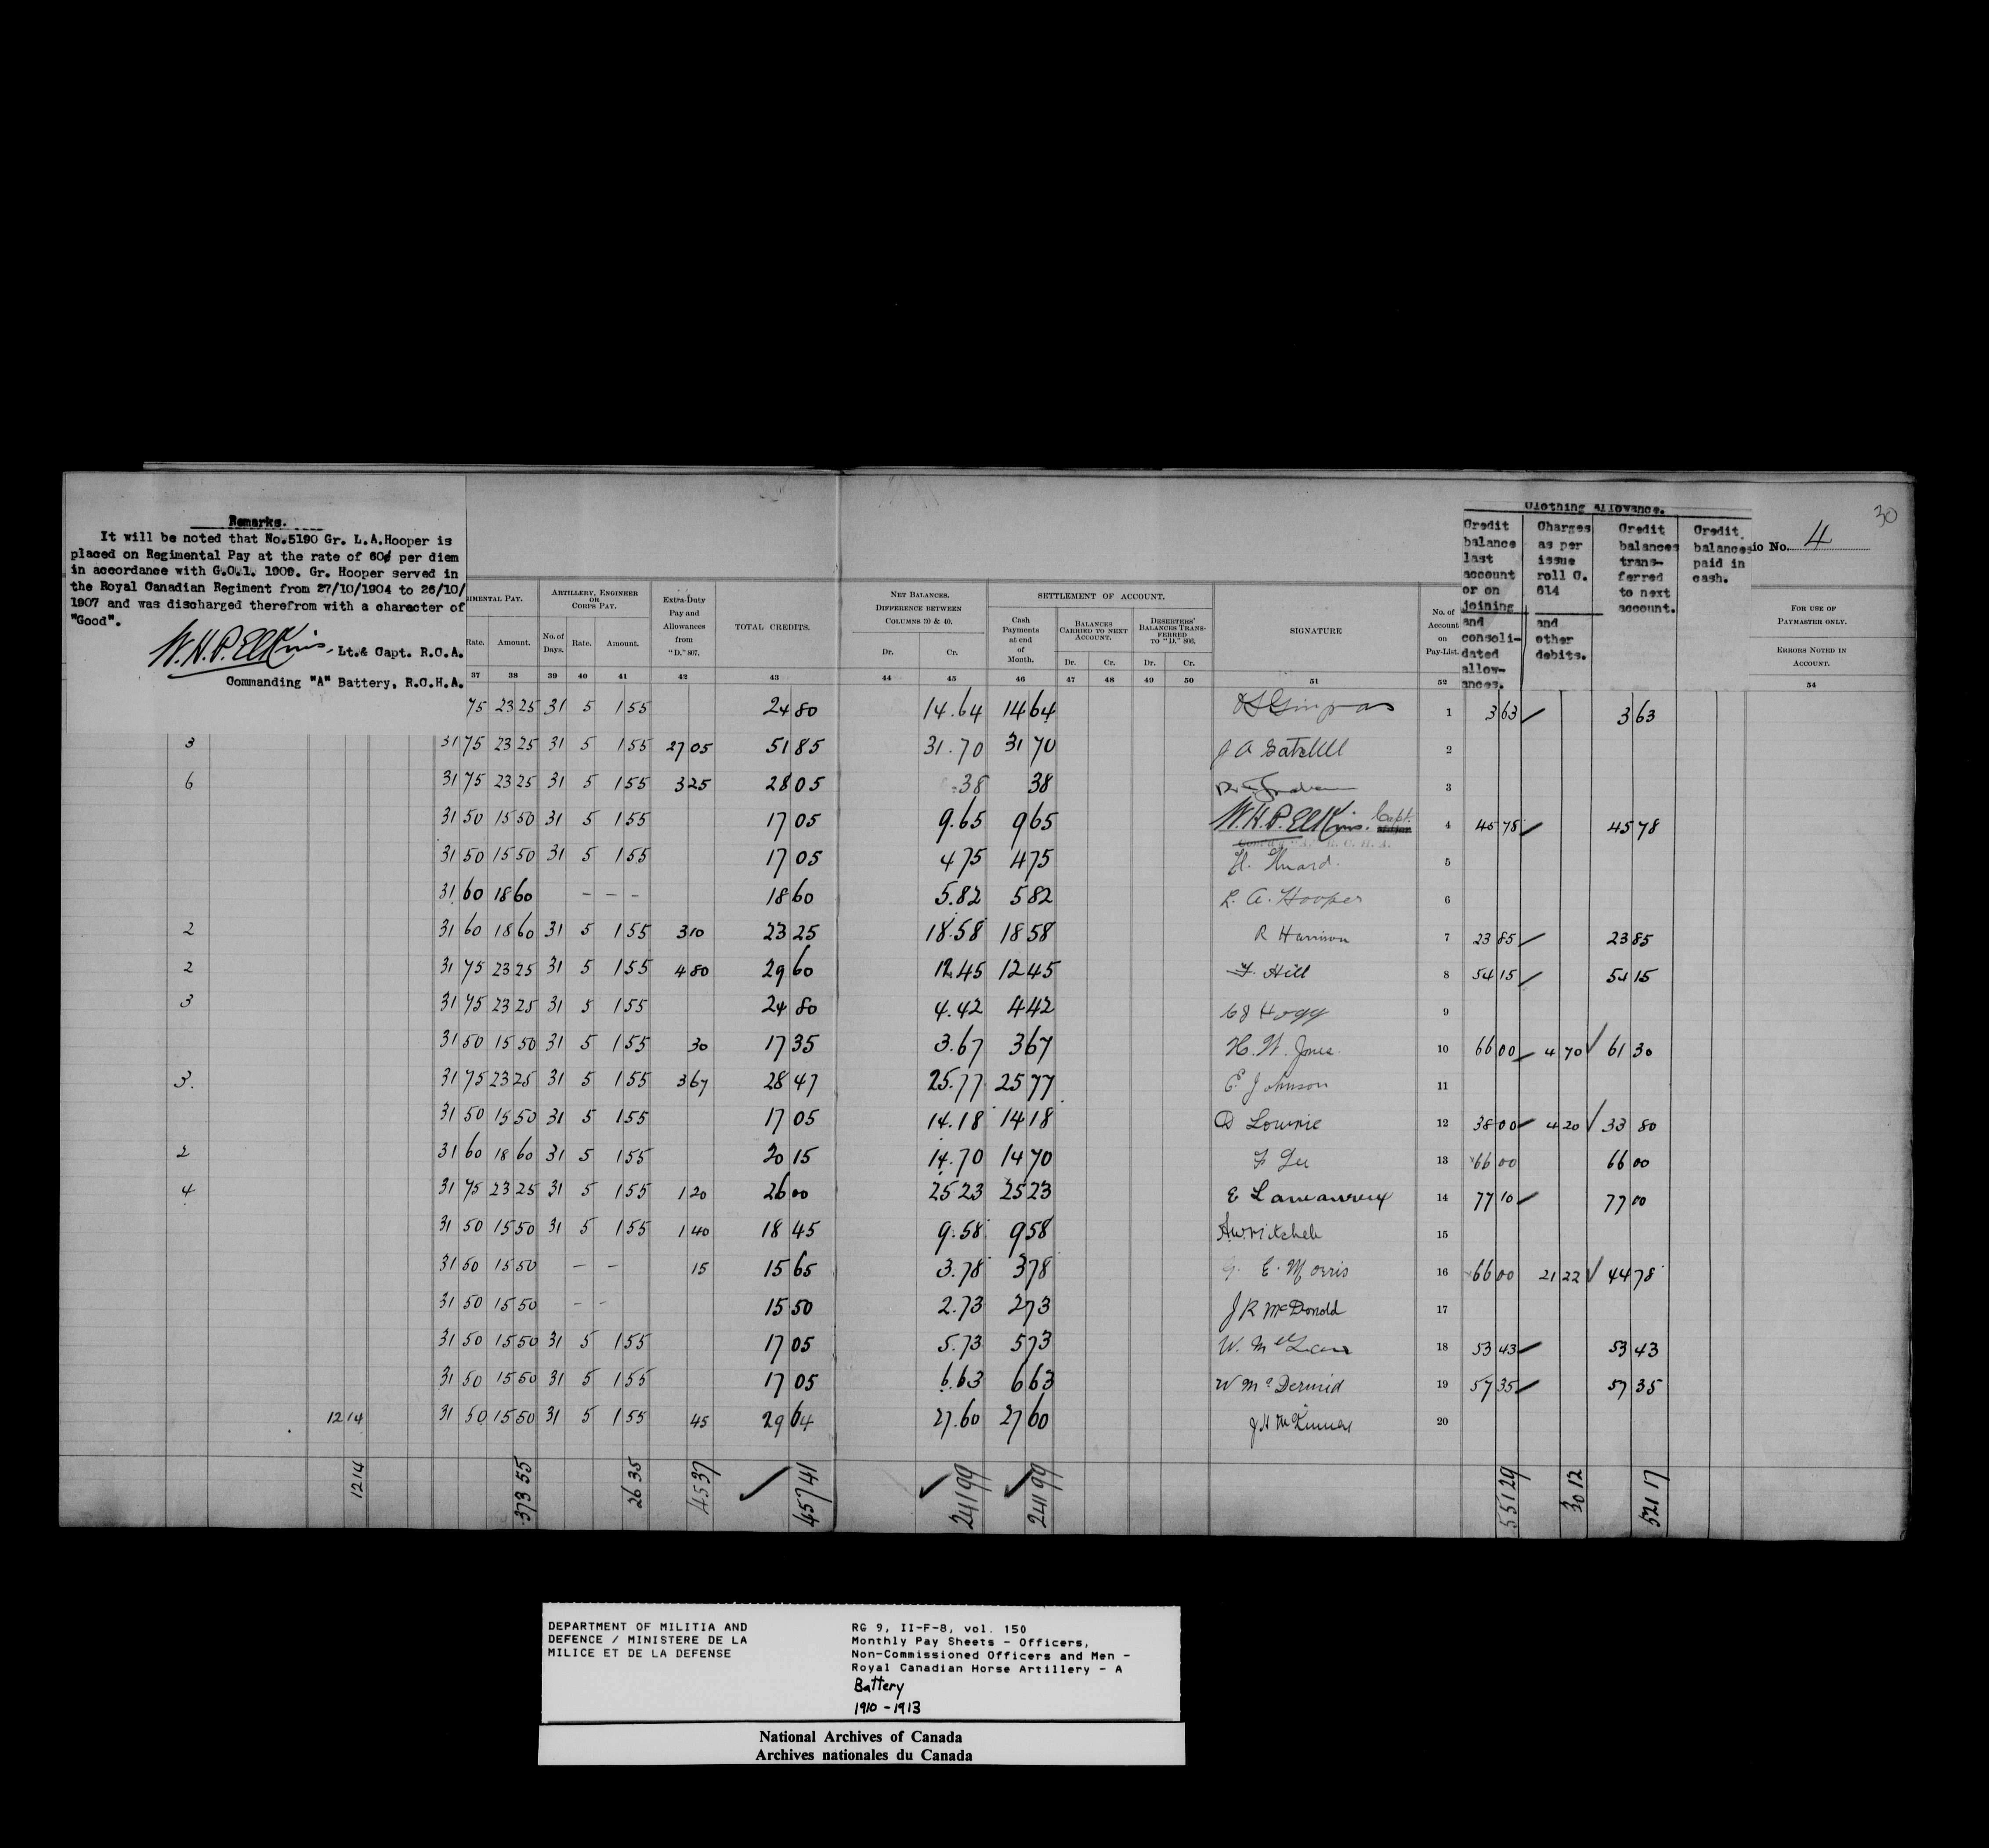 30
Remarks.
It will be noted that No.5190 Gr. L.A.Hooper is
placed on Regimental Pay at the rate of 60¢ per diem
in accordance with G.O.1. 1909. Gr. Hooper served in
the Royal Canadian Regiment from 27/10/1904 to 26/10/
1907 and was discharged therefrom with a character of
"Good".
W.H.P. Elkins, Lt.& Capt. R.C.A.
Commanding "A" Battery, R.C.H.A.
Clothing Allowance.
Credit balance last account or on joining and consoli-dated allow-ances.
Charges as per issue roll G. 614 and other debits.
Credit balances trans-ferred to next account.
Credit balances paid in cash.
io No. 4
IMENTAL PAY.
Rate. Amount.
ARTILLERY, ENGINEER OR CORPS PAY.
No. of Days. Rate. Amount.
Extra-Duty Pay and Allowances from "D." 807.
TOTAL CREDITS.
NET BALANCES.
DIFFERENCE BETWEEN COLUMNS 30 & 40.
Dr. Cr.
SETTLEMENT OF ACCOUNT.
Cash Payments at end of Month.
BALANCES CARRIED TO NEXT ACCOUNT.
Dr. Cr.
DESERTERS' BALANCES TRANS-FERRED TO "D." 866.
Dr. Cr.
SIGNATURE
No. of Account on Pay-List.
FOR USE OF PAYMASTER ONLY.
ERRORS NOTED IN ACCOUNT.
37 38 39 40 41 42 43 44 45 46 47 48 49 50 51 52 54
75 23 25 31 5 1 55 24 80 14.64 14 64 1 3 63 3 63
3 31 75 23 25 31 5 1 55 27 05 51 85 31.70 31 70 J A Gatchell 2
6 31 75 23 25 31 5 1 55 3 25 28 05 .38 38 3
31 50 15 50 31 5 1 55 17 05 9.65 9 65 W.H.P. Elkins. Capt. 4 45 78 45 78
31 50 15 50 31 5 1 55 17 05 4 75 4 75 H. Huard. 5
31 60 18 60 - - - 18 60 5.82 5 82 L. A. Hooper 6
2 31 60 18 60 31 5 1 55 3 10 23 25 18.58 18 58 R Harrison 7 23 85 23 85
2 31 75 23 25 31 5 1 55 4 80 29 60 12.45 12 45 F. Hill 8 54 15 54 15
3 31 75 23 25 31 5 1 55 24 80 4.42 4 42 C J Hogg 9
31 50 15 50 31 5 1 55 30 17 35 3.67 3 67 H. W. Jones. 10 66 00 4 70 61 30
3. 31 75 23 25 31 5 1 55 3 67 28 47 25.77 25 77 E. Johnson 11
31 50 15 50 31 5 1 55 17 05 14.18 14 18 D Lowrie 12 38 00 4 20 33 80
2 31 60 18 60 31 5 1 55 20 15 14.70 14 70 F Lee 13 66 00 66 00
4 31 75 23 25 31 5 1 55 1 20 26 00 25 23 25 23 E Lamarreux 14 77 10 77 00
31 50 15 50 31 5 1 55 1 40 18 45 9.58 9 58 A.W. Mitchele 15
31 50 15 50 - - 15 15 65 3.78 3 78 E. Morris 16 66 00 21 22 44 78
31 50 15 50 - - 15 50 2.73 2 73 J R McDonald 17
31 50 15 50 31 5 1 55 17 05 5.73 5 73 W. McLean 18 53 43 53 43
31 50 15 50 31 5 1 55 17 05 6.63 6 63 W McDermid 19 57 35 57 35
12 14 31 50 15 50 31 5 1 55 45 29 64 27.60 27 60 J H McKinnon 20
12 14 373 55 26 35 45 37 457 41 241 99 241 99 551 29 30 12 521 17
DEPARTMENT OF MILITIA AND
DEFENCE / MINISTERE DE LA
MILICE ET DE LA DEFENSE
RG 9, II-F-8, vol. 150
Monthly Pay Sheets - Officers,
Non-Commissioned Officers and Men -
Royal Canadian Horse Artillery - A
Battery
1910 - 1913
National Archives of Canada
Archives nationales du Canada